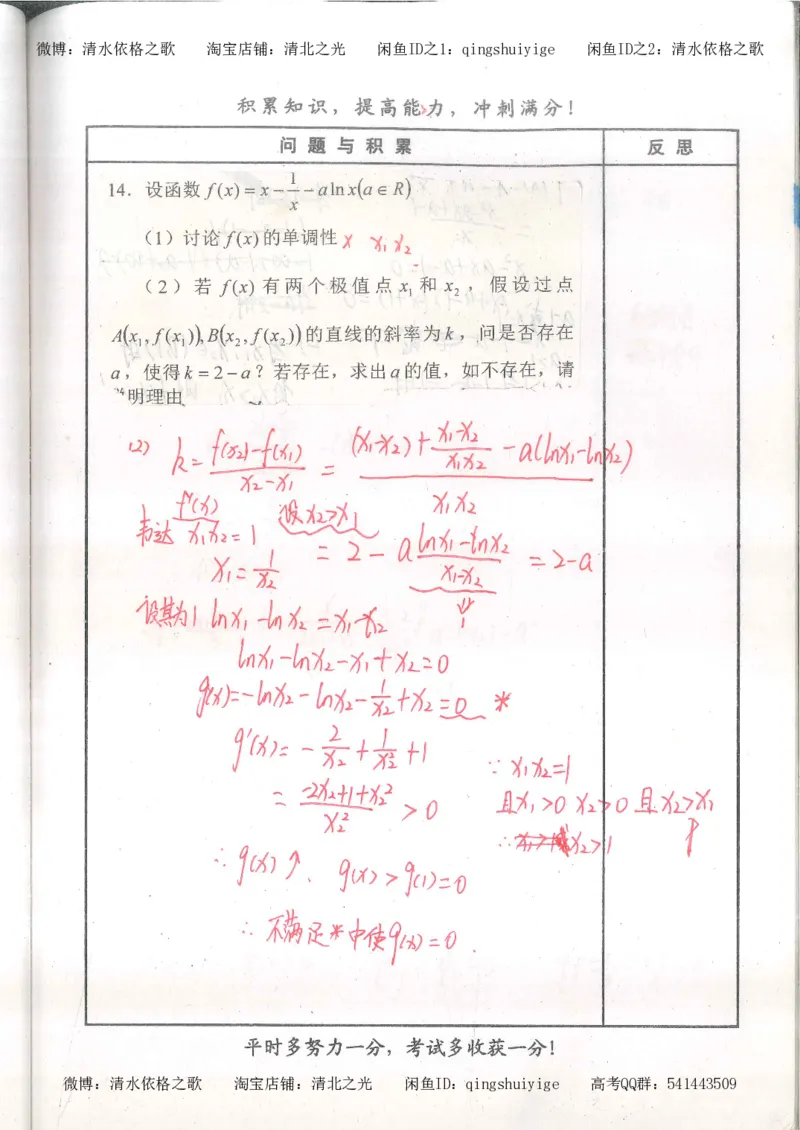 微博：清水依格之歌 淘宝店铺：清北之光 闲鱼ID之1：qingshuiyige 闲鱼ID之2：清水依格之歌
积累知识，提高能力，冲刺满分！
问题与积累 反思
14．设函数 f(x)=x-1/x-alnx(a∈R)
（1）讨论f(x)的单调性 x x₁x₂
（2）若 f(x) 有两个极值点 x₁ 和 x₂，假设过点
A(x₁,f(x₁)),B(x₂,f(x₂))的直线的斜率为k，问是否存在
a，使得k=2-a？若存在，求出a的值，如不存在，请
明理由
(2) k=(f(x₂)-f(x₁))/(x₂-x₁) = ((x₁-x₂)+(x₁-x₂)/(x₁x₂)-a(lnx₁-lnx₂))/(x₁x₂)
f'(x)
韦达 x₁x₂=1 设x₂>x₁
x₁=1/x₂ =2-a(lnx₁-lnx₂)/(x₁-x₂)=2-a
⇓
1
设其为1 lnx₁-lnx₂=x₁-x₂
lnx₁-lnx₂-x₁+x₂=0
g(x)=-lnx₂-lnx₂-1/x₂+x₂=0 *
g'(x)=-2/x₂+1/x₂²+1
=(-2x₂+1+x₂²)/x₂²>0
∵x₁x₂=1
且x₁>0 x₂>0 且x₂>x₁
∴x₂>1
∴g(x)↑、g(x)>g(1)=0
∴不满足*中使g(x)=0
平时多努力一分，考试多收获一分！
微博：清水依格之歌 淘宝店铺：清北之光 闲鱼ID：qingshuiyige 高考QQ群：541443509